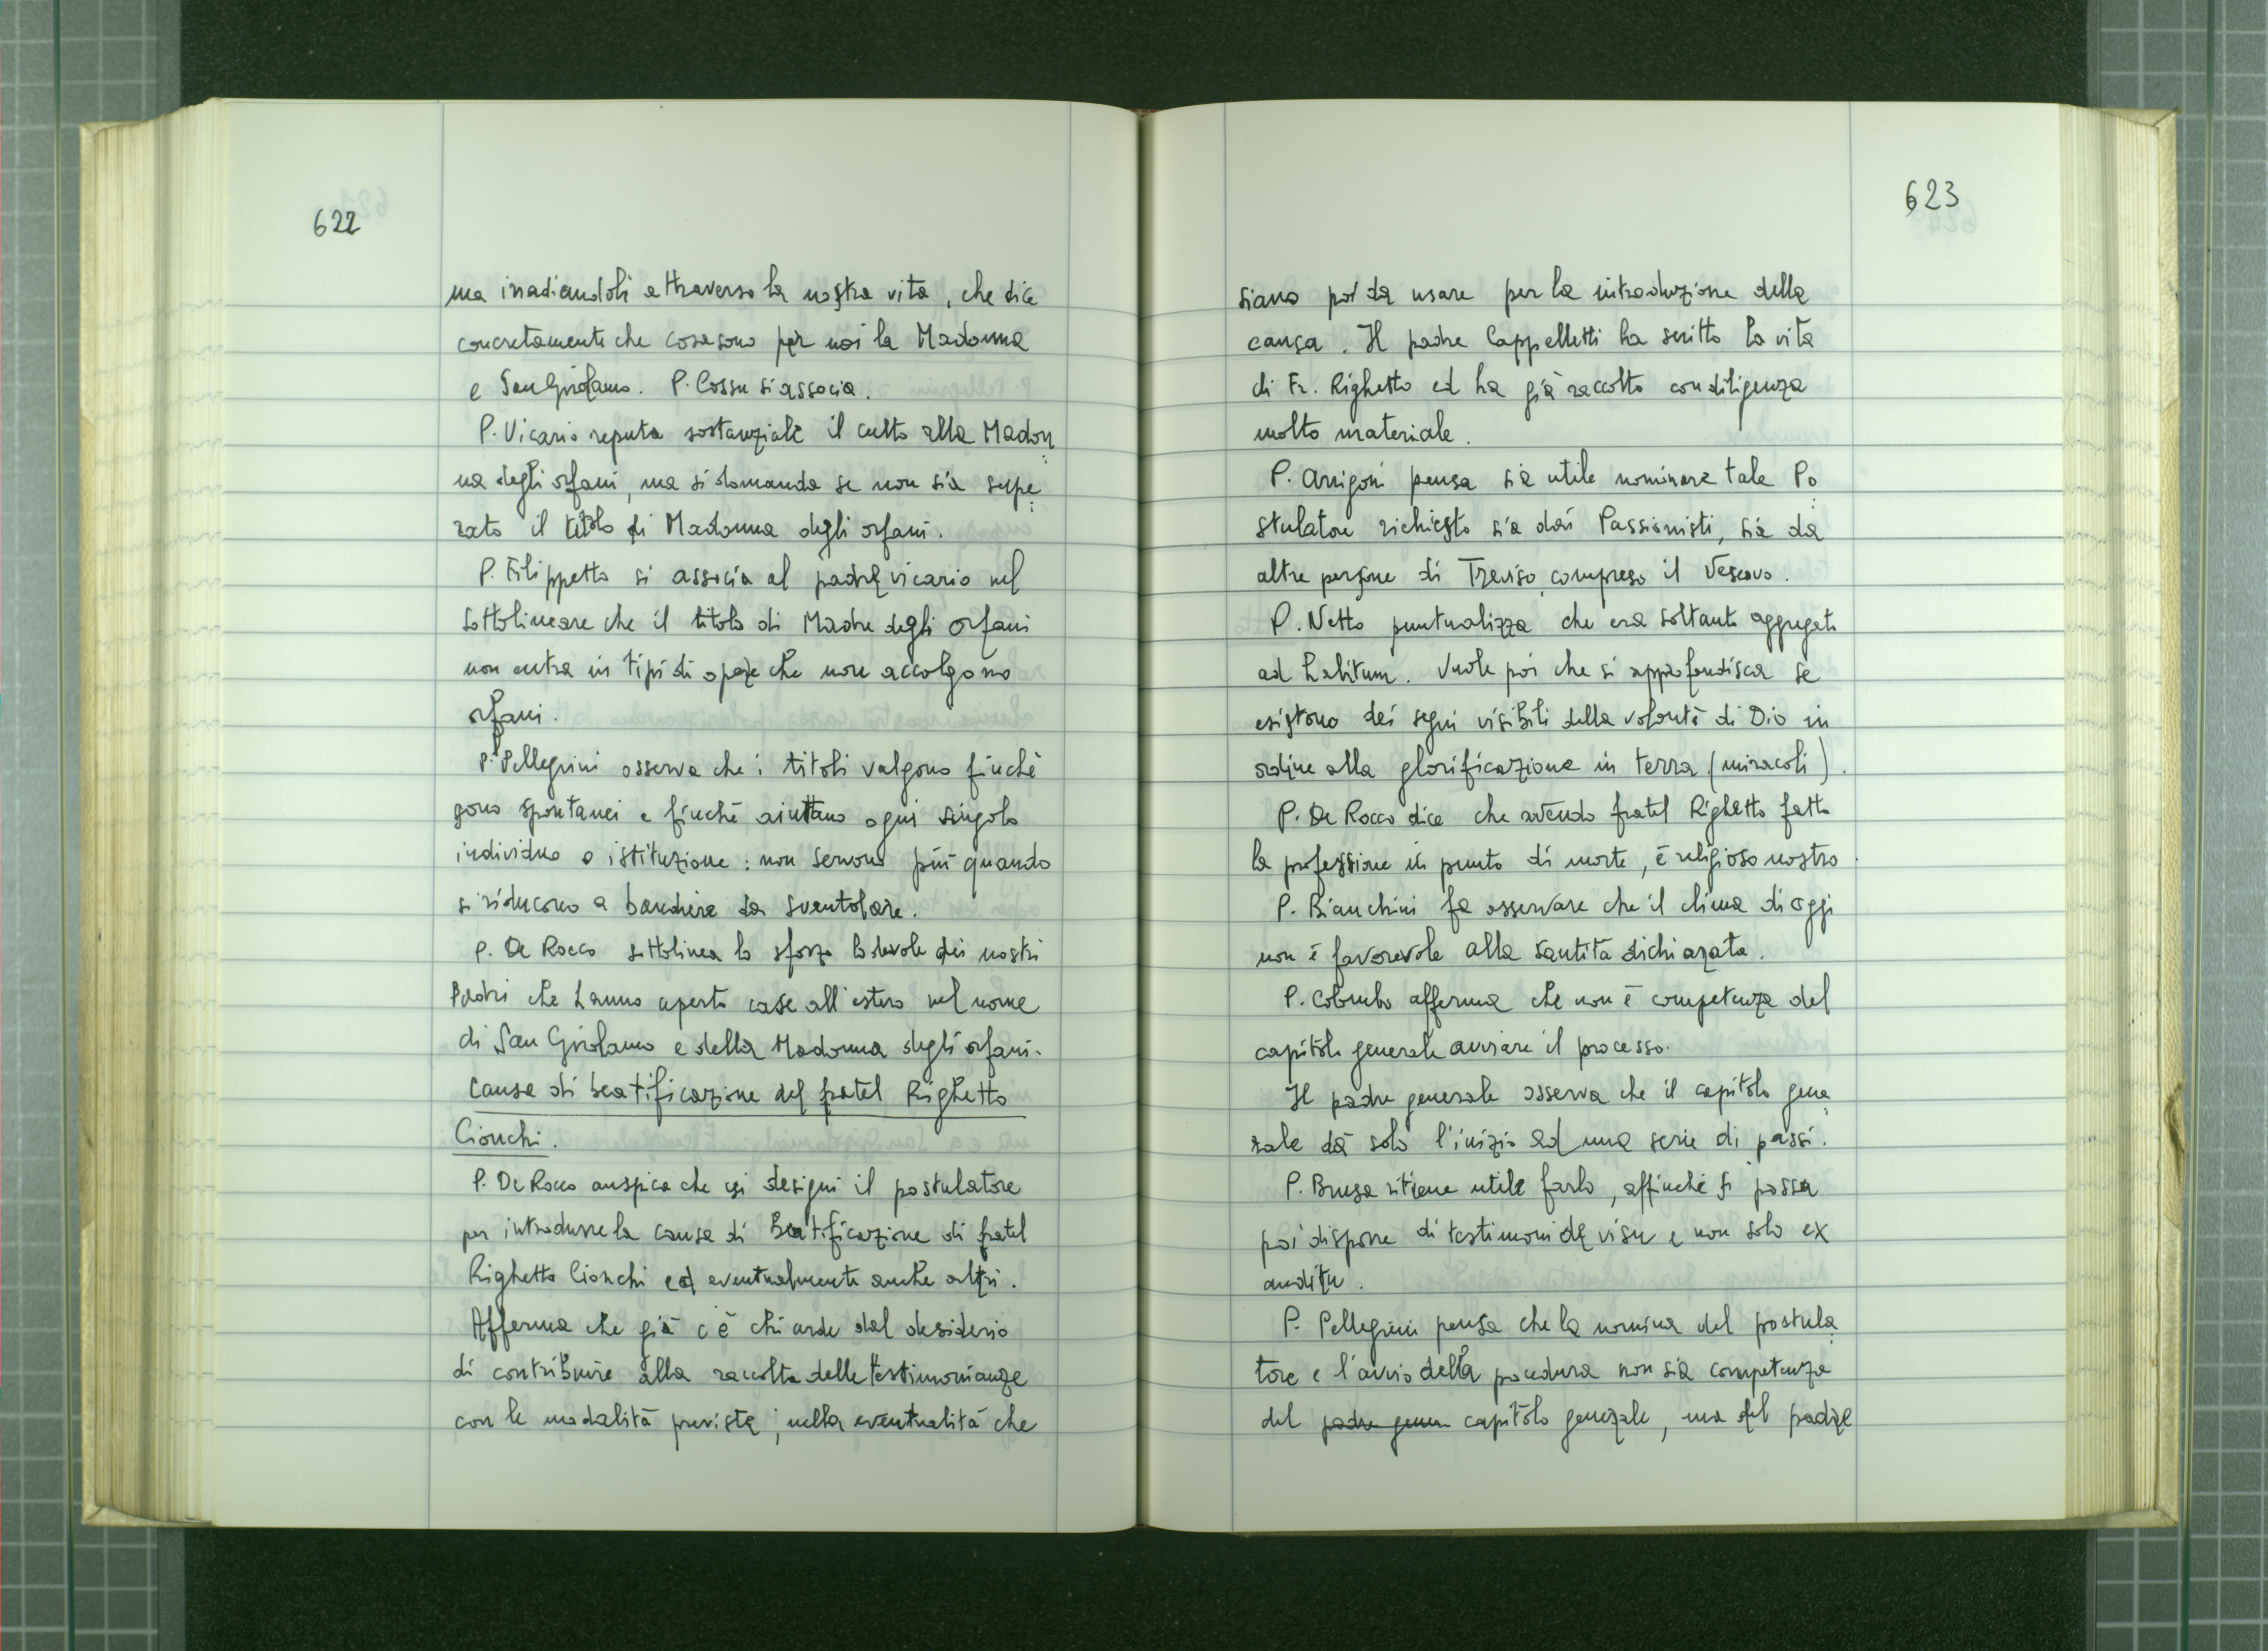 622
ma irradiandoli attraverso la nostra vita, che dice
concretamente che cosa sono per noi la Madonna
e San Girolamo. P. Cossu si associa.
P. Vicario reputa sostanziale il culto alla Madon
na degli orfani, ma si domanda se non sia supe
rato il titolo di Madonna degli orfani.
P. Filippetto si associa al padre vicario nel
sottolineare che il titolo di Madre degli orfani
non entra in tipi di opere che non accolgono
orfani.
P. Pellegrini osserva che i titoli valgono finché
sono spontanei e finché aiuttano ogni singolo
individuo o istituzione: non servono più quando
si riducono a bandiere da sventolare.
P. De Rocco sottolinea lo sforzo lodevole dei nostri
Padri che hanno aperto case all'estero nel nome
di San Girolamo e della Madonna degli orfani.
Causa di beatificazione del fratel Righetto
Cionchi.
P. De Rocco auspica che si designi il postulatore
per introdurre la causa di Beatificazione di fratel
Righetto Cionchi ed eventualmente anche altri.
Afferma che già c'è chi arde dal desiderio
di contribuire alla raccolta delle testimonianze
con le modalità previste, nella eventualità che
623
siano poi da usare per la introduzione della
causa. Il padre Cappelletti ha scritto la vita
di Fr. Righetto ed ha già raccolto con diligenza
molto materiale.
P. Arrigoni pensa sia utile nominare tale Po
stulatore richiesto sia dai Passionisti, sia da
altre persone di Treviso, compreso il Vescovo.
P. Netto puntualizza che era soltanto aggregato
ad habitum. Vuole poi che si approfondisca se
esistono dei segni visibili della volontà di Dio in
ordine alla glorificazione in terra (miracoli).
P. De Rocco dice che avendo fratel Righetto fatto
la professione in punto di morte, è religioso nostro.
P. Bianchini fa osservare che il clima di oggi
non è favorevole alla santità dichiarata.
P. Colombo afferma che non è competenza del
capitolo generale avviare il processo.
Il padre generale osserva che il capitolo gene
rale dà solo l'inizio ad una serie di passi.
P. Brusa ritiene utile farlo, affinché si possa
poi disporre di testimoni de visu e non solo ex
auditu.
P. Pellegrini pensa che la nomina del postula
tore e l'avvio della procedura non sia competenza
del padre gener capitolo generale, ma del padre